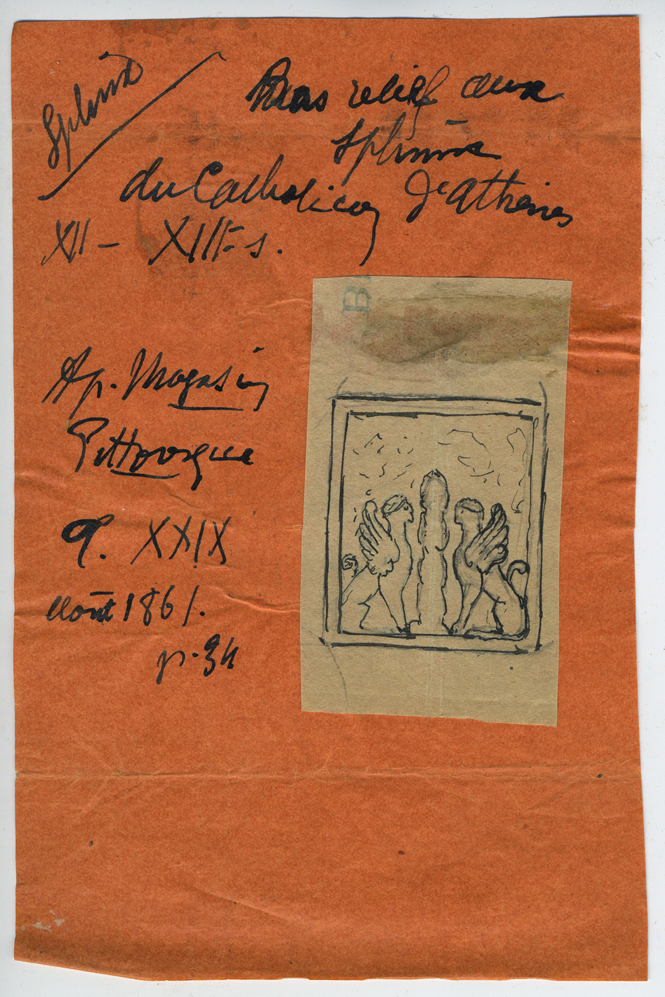 Sphinx
Bas relief deux
Sphinx
du Catholicon d'Athènes
XII - XIII s.
Ap. Magasin
Pittoresque
T. XXIX
Août 1861.
p. 34
B